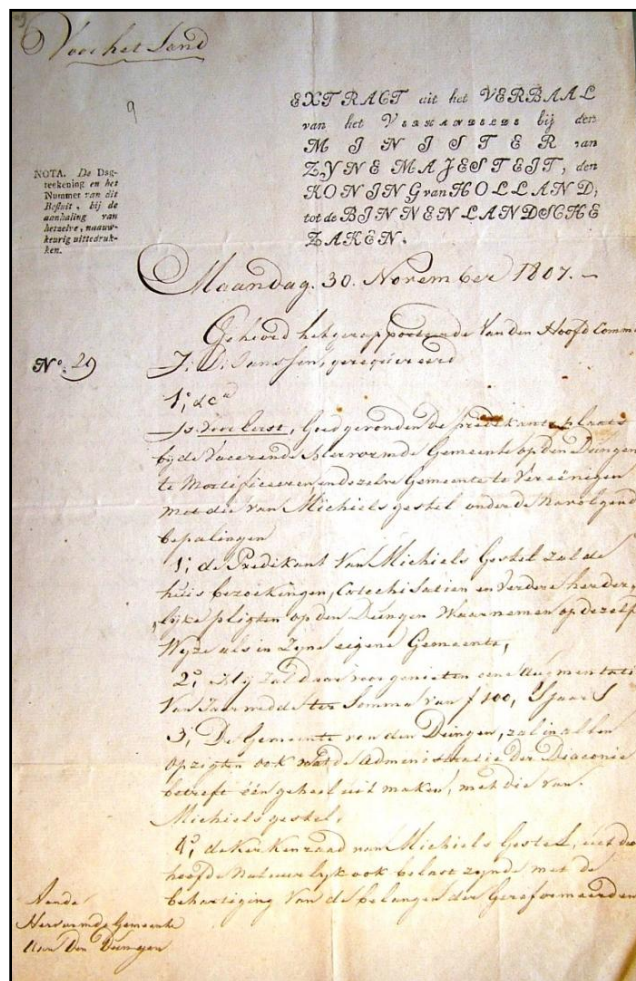 Voor het Land
9
EXTRACT uit het VERBAAL
van het VERHANDELDE bij den
MINISTER van
ZYNE MAJESTEIT, den
KONING van HOLLAND,
tot de BINNENLANDSCHE
ZAKEN.
NOTA. De Dag-
teekening en het
Nummer van dit
Besluit, bij de
aanhaling van
hetzelve, naauw-
keurig uittedruk-
ken.
Maandag. 30. November 1807. –
Gehoord het gerapporteerde Van den Hoofd Comm
No. 29
J: D: Janssen, gerequireerd
1°, &ca
Is Goedgevonden De predikants plaats
bij de Vacerende Hervormde Gemeente op den Dungen
te Mortificeeren en dezelve Gemeente te Vereenigen
met die van Michiels gestel onder de navolgend
bepalingen
1°, de Predikant Van Michiels Gestel zal de
huis bezoekingen, Catechisatien en Verdere herder,
lijke pligten op den Dungen Waarnemen op dezelf
Wyze als in Zyne eigene Gemeente,
2°, Hij zal daar voor genieten eene augmentati
Van Jaarwedde ter Somma van f 100, 'sjaars
3°, De Gemeente van den Dungen, zal in allen
opzigten ook wat de administratie der Diaconie
betreft één geheel uit maken, met die van
Michiels gestel,
4°, de Kerkenraad van Michiels Gestel, uit d
hoofde natuurlyk ook belast zynde met de
behartiging Van de belangen der Gereformeerden
Aan de
Hervormde Gemeente
Aan Den Dungen